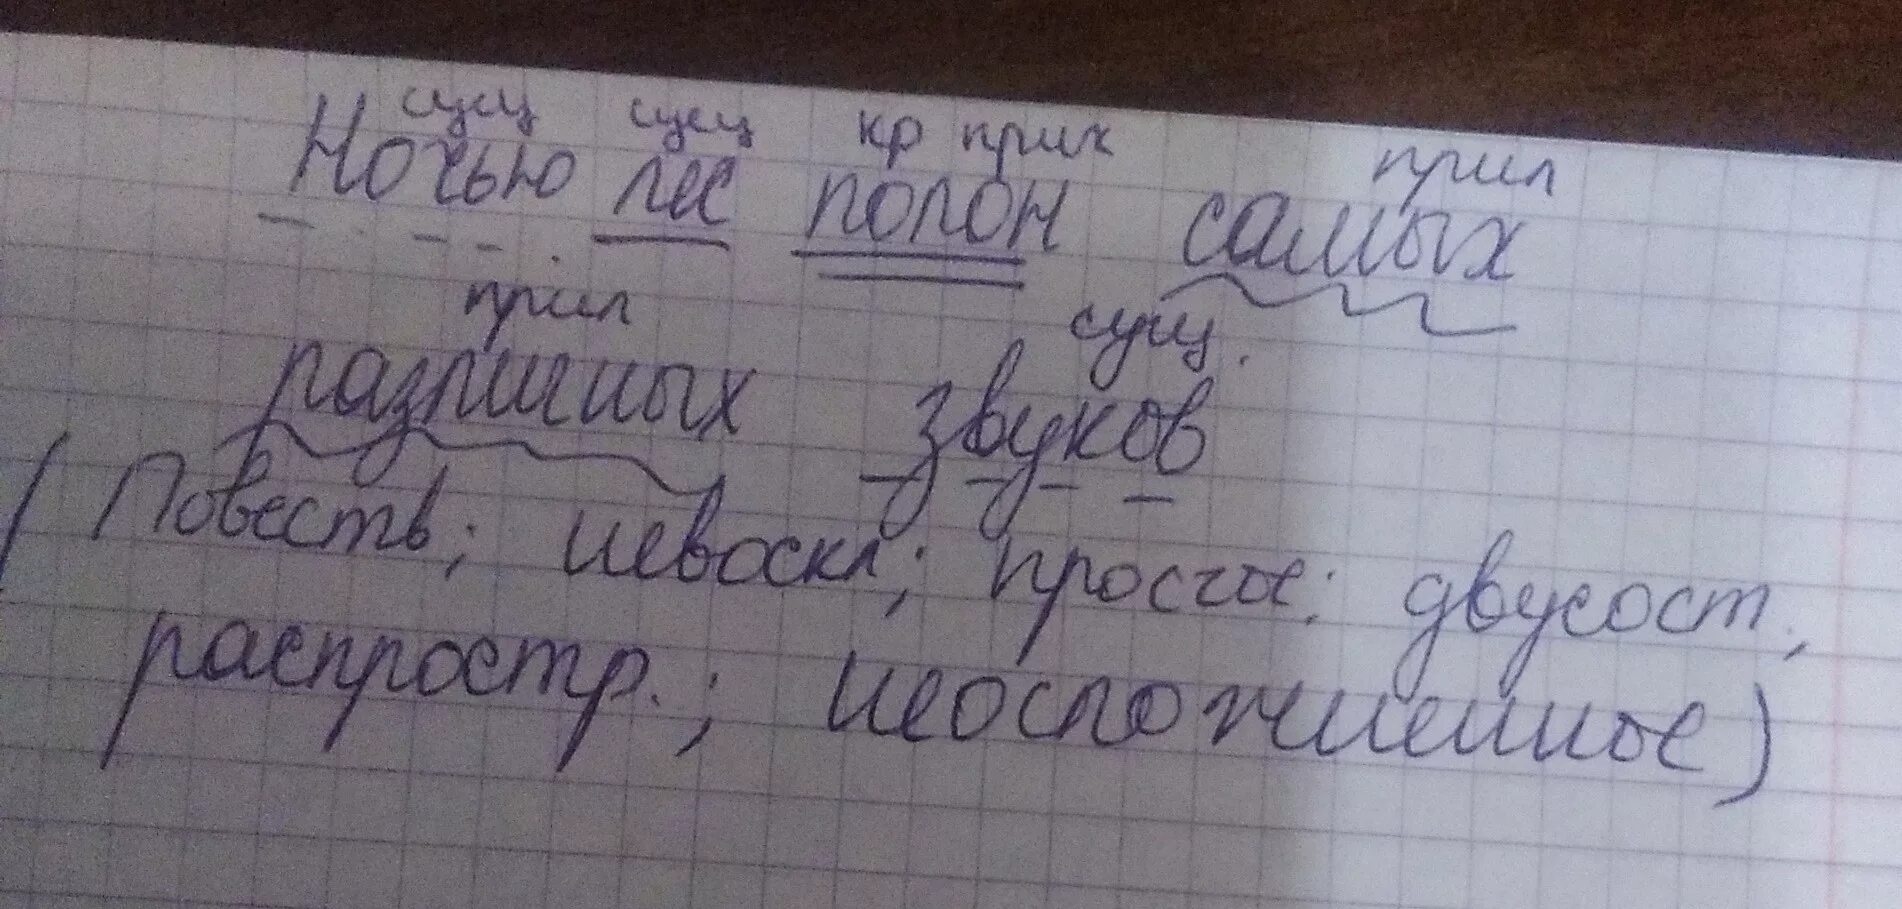 сущ сущ кр прих прил
Ночью лес полон самых
прил сущ.
различных звуков
(Повеств; невоскл; простое; двусост.;
распростр.; неосложненное)